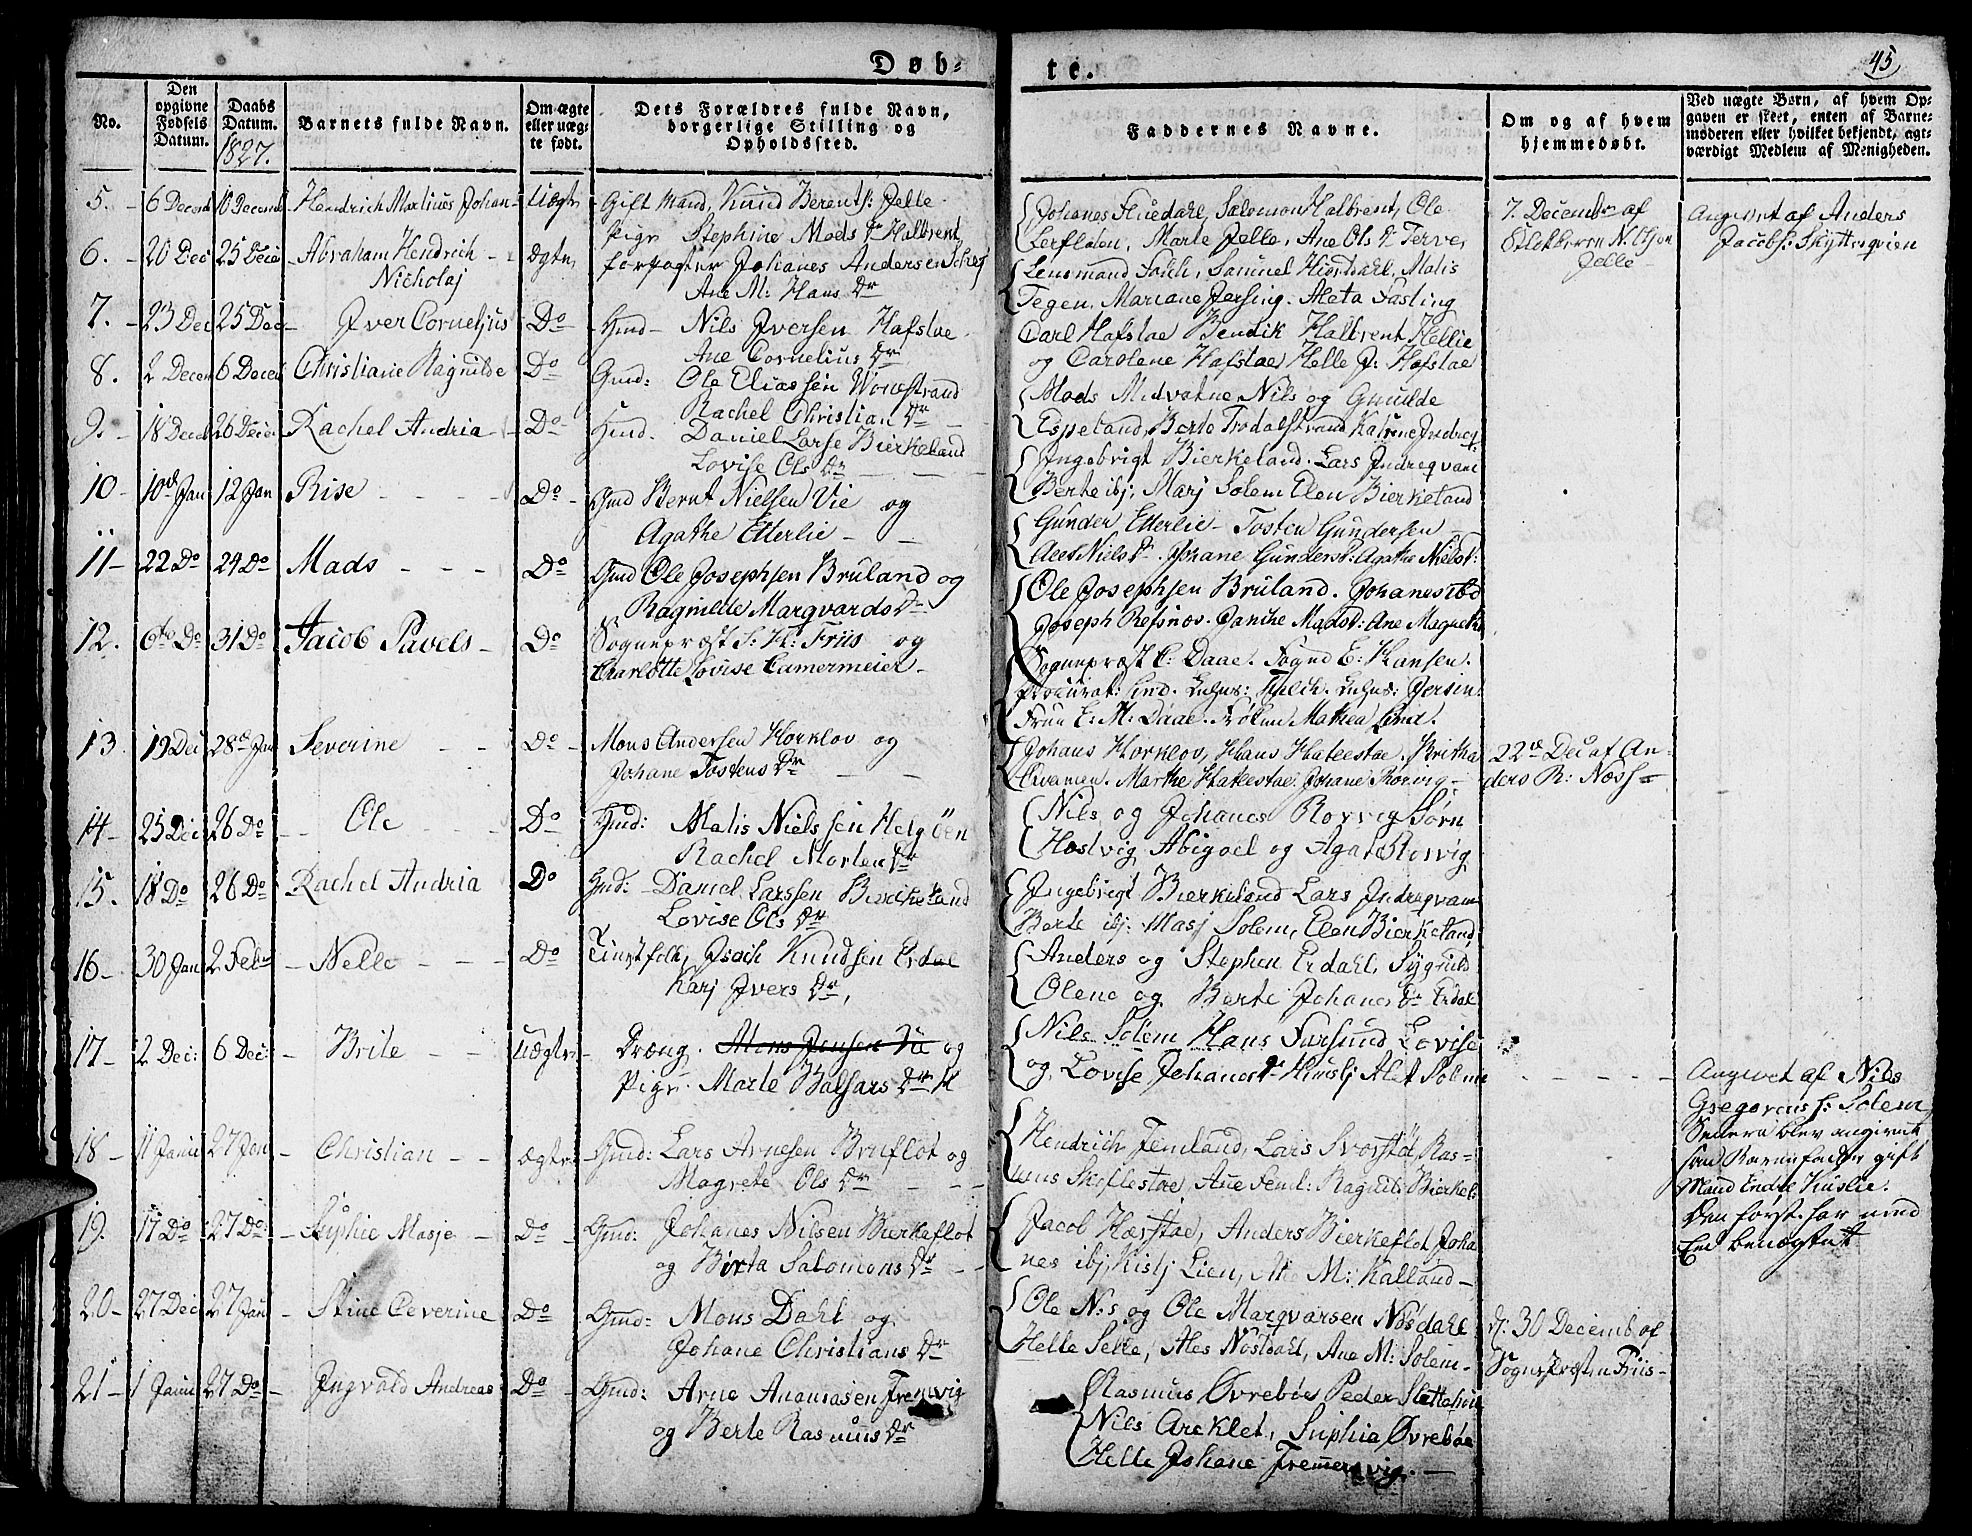 Døb-
te.
45
No.
Den opgivne Fødsels Datum.
Daabs Datum. 1827.
Barnets fulde Navn.
Om ægte eller uæg-te født.
Dets Forældres fulde Navn, borgerlige Stilling og Opholdssted.
Faddernes Navne.
Om og af hvem hjemmedøbt.
Ved uægte Børn, af hvem Op-gaven er skeet, enten af Barne-moderen eller hvilket bekjendt, agt-værdigt Medlem af Menigheden.
5. 6 Decemb 10 Decemb Hendrich Martinus Johan Uægte Gift Mand, Knud Berents: Jelle
Pige Stephine Mads Dr Halbrent
Johanes Huedahl, Salomon Halbrent, Ole
Lerfløten, Marte Jelle, Ane Ols Dr Terve,
7. Decembr af
Jelle
Angivet af Anders
Jacobs: Skyttequien
6. 20 Dec 25 Decb Abraham Hendrich Nicholaj ægte forpagter Johanes Andersen
Ane M: Hans Dr
Lensmand Falch, Samuel Hiortdahl, Matis
Tegen, Mariane Jersing. Aleta Fasling
7. 23 Dec 25 Dec Iver Cornelius Do Gmd Nils Iversen Hafstae
Ane Cornelius Dr
Carl Hafstae Bendik Halbrent Hellie
og Carolene Hafstae Helle J: Hafstae
8. 2 Decem 6 Decem Christiane Ragnilde Do Gmd: Ole Eliassen
Rachel Christian Dr
Mads Midvatne Nils og Gunilde
Espeland, Berte Trodalstrand Katrine Indreq:
9. 18 Decb 26 Decem Rachel Andria Do Gmd. Daniel Larse Bierkeland
Lovise Ols Dr
Ingebrigt Bierkeland. Lars Indreqvam
Berte ibj, Marj Solem Elen Bierkeland
10 10de Jan 12 Jan Rise Do Gmd Bernt Nielsen Vie og
Agathe Etterlie
Gunder Etterlie Tosten Gundersen
Niels Dr. Johane Gunders D: Agathe Niels D:
11 22 Do 24 Do Mads Do Gmd Ole Josephsen Bruland og
Ragnilde Marqvards Dr
Ole Josephsen Bruland. Johanes ibd
Joseph Refsnæs. Janike Mads D: Ane Magnethe
12. 6te Do 31 Do Jacob Pavels Do Sognepræst S: H: Friis og
Charlotte Lovise Camermeier
Sognepræst C: Daae. Fogud E: Hansen.
Procurat: Lind. Lehns: Falch. Lehns: Jersin:
Frue E: M: Daae. Frøken Mathea Lind.
13 19 Dec 28de Jan Severine Do Mons Andersen Horklov og
Johane Tostens Dr
Johans Horklov, Hans Hakestae, Britha
Marthe Hakestae. Johane Rorvig
22de Dec af An-
ders R: Næss
14 25 Dec 26 Do Ole Do Gmd: Matis Nielssen Helgøen
Rachel Morten Dr
Nils og Johanes Rorvig Sørn
Hestvig Abigael og Agate Rorvig
15. 18 Do 26 Do Rachel Andria Do Gmd: Daniel Larssen Bierkeland
Lovise Ols Dr
Ingebrigt Bierkeland Lars Indreqvam
Berte ibj: Masj Solem, Elen Bierkeland
16 30 Jan 2 Febr Nelle Do Tienstfolk, Isach Knudsen Erdal
Karj Ivers Dr,
Anders og Stephen Erdahl, Sygnild
Olene og Berte Johanes Dr Erdal
17 2 Dec: 6 Dec: Brite Uægte Dræng. Mons Jensen Vie og
Pige. Marte Balsars Dr
Nils Solem Hans Farsund Lovise
og Lovise Johanes Dr Alet Solem
Angivet af Nils
Gregoriuss: Solem
Senere blev angivet
som Barnefader gift
Mand Endre Huslie.
Den første har med
Eed benægtet
18 11 Janu 27 Jan Christian ægte Gmd: Lars Arnesen Bruflot og
Magrete Ols Dr
Hendrich Femland, Lars Svorstøl Ras-
mus Skeflestae, Ane Feml: Ragnild Bierkel:
19. 17 Do 27 Do Sophie Masje Do Gmd: Johanes Nilsen Bierkeflot
og Birta Salomons Dr
Jacob Hæstae, Anders Bierkeflot Joha
nes ibj, Kistj Lien, M: Kalland
20 27 Dec 27 Jan Stine Severine Do Gmd: Mons Dahl og
Johane Christians Dr
Ole N:s og Ole Marqvarsen Nøsdahl
Helle Selle, Ales Nøstdahl, Ane M: Solem
d: 30 Decemb. af
Sognepræsten Friis
21 1 Janu 27 Do Ingvald Andreas Do Gmd: Arne Anamasen Fremvig
og Berte Rasmus Dr
Rasmus Øvrebøe Peder
Nils Areklet, Suphia Øvrebøe
Helle Johane Fremervig.